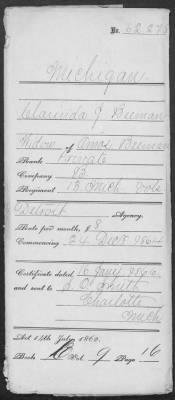 No. 62 278
Michigan
Clarinda J Beeman
Widow of Amos Beeman
Rank Private
Company
Regiment 13 Mich Vols
Detroit Agency.
Rate per month, $ 8
Commencing 24 Dec 1864
Certificate dated 16 1866
and sent to
Charlotte
Mich
Act 14th July, 1862.
Book Vol. 9 Page 16